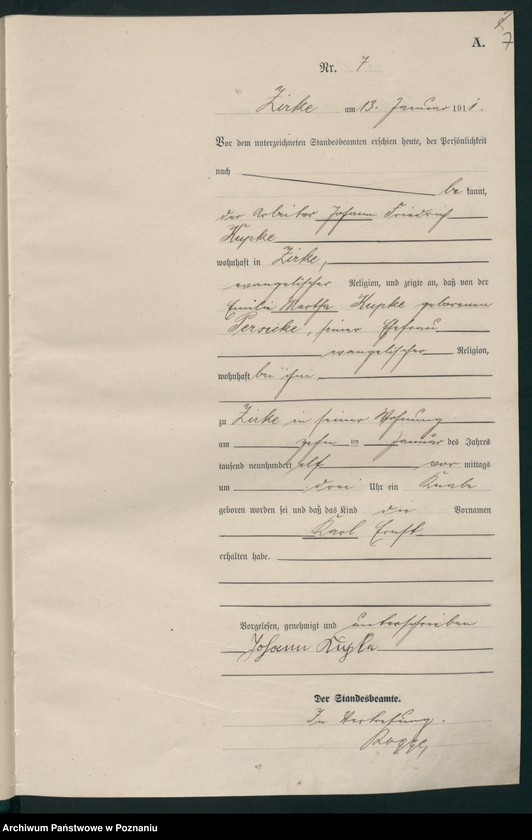 7
A.
Nr. 7
Zirke am 13. Januar 1911.
Vor dem unterzeichneten Standesbeamten erschien heute, der Persönlichkeit
nach
be kannt,
der Arbeiter Johann Friedrich
Kupke
wohnhaft in Zirke,
evangelischer Religion, und zeigte an, daß von der
Emilie Martha Kupke geborenen
Persicke, seiner Ehefrau
evangelischer Religion,
wohnhaft bei ihm
zu Zirke in seiner Wohnung
am zehn ten Januar des Jahres
tausend neunhundert elf vor mittags
um drei Uhr ein Knabe
geboren worden sei und daß das Kind die Vornamen
Karl Ernst
erhalten habe.
Vorgelesen, genehmigt und unterschrieben
Johann Kupke
Der Standesbeamte.
In Vertretung.
Archiwum Państwowe w Poznaniu